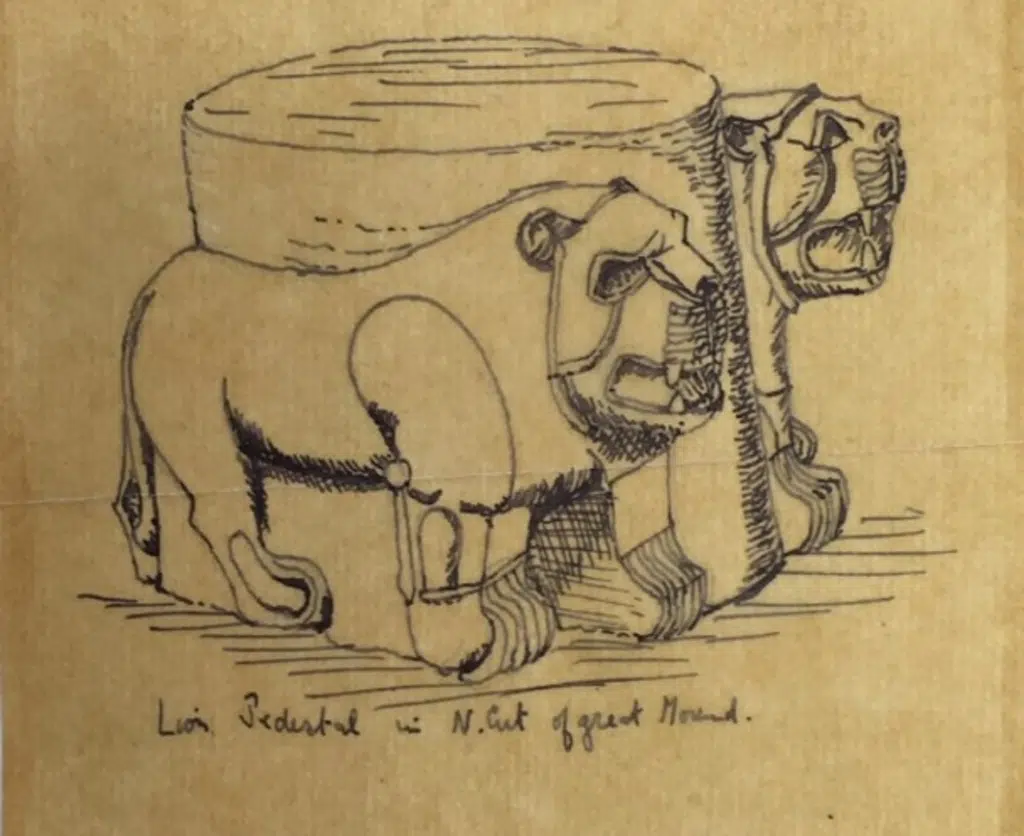 Lion Pedestal in N. Cut of great Mound.